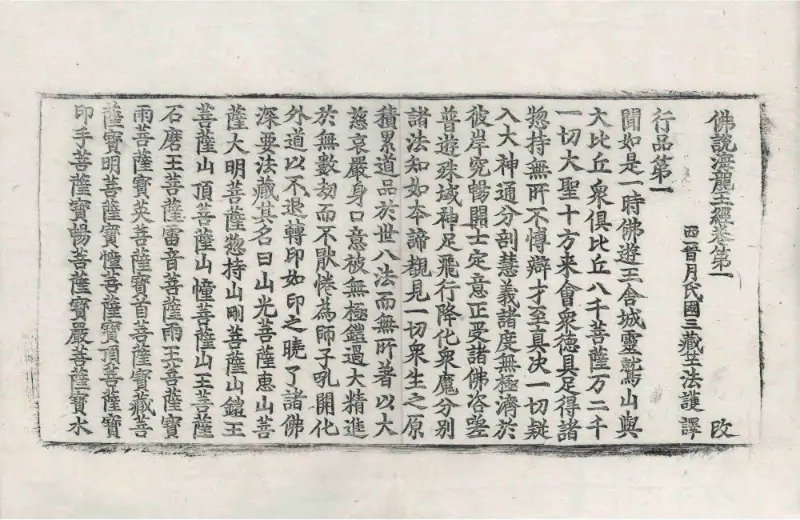 佛說海龍王經卷第一 改
西晉月氏國三藏竺法護譯
行品第一
聞如是一時佛遊王舍城靈鷲山與
大比丘衆俱比丘八千菩薩万二千
一切大聖十方来會衆德具足得諸
惣持無所不博辯才至真决一切疑
入大神通分剖慧義諸度無極濟於
彼岸究暢開士定意正受諸佛咨嗟
普遊殊域神足飛行降化衆魔分別
諸法知如本諦覩見一切衆生之原
積累道品於世八法而無所著以大
慈哀嚴身口意被無極鎧過大精進
於無數劫而不猒惓為師子吼開化
外道以不退轉印如印之曉了諸佛
深要法藏其名曰山光菩薩惠山菩
薩大明菩薩惣持山剛菩薩山鎧王
菩薩山頂菩薩山幢菩薩山王菩薩
石磨王菩薩雷音菩薩雨王菩薩寶
雨菩薩寶英菩薩寶首菩薩寶藏菩
薩寶明菩薩寶幢菩薩寶頂菩薩寶
印手菩薩寶暢菩薩寶嚴菩薩寶水